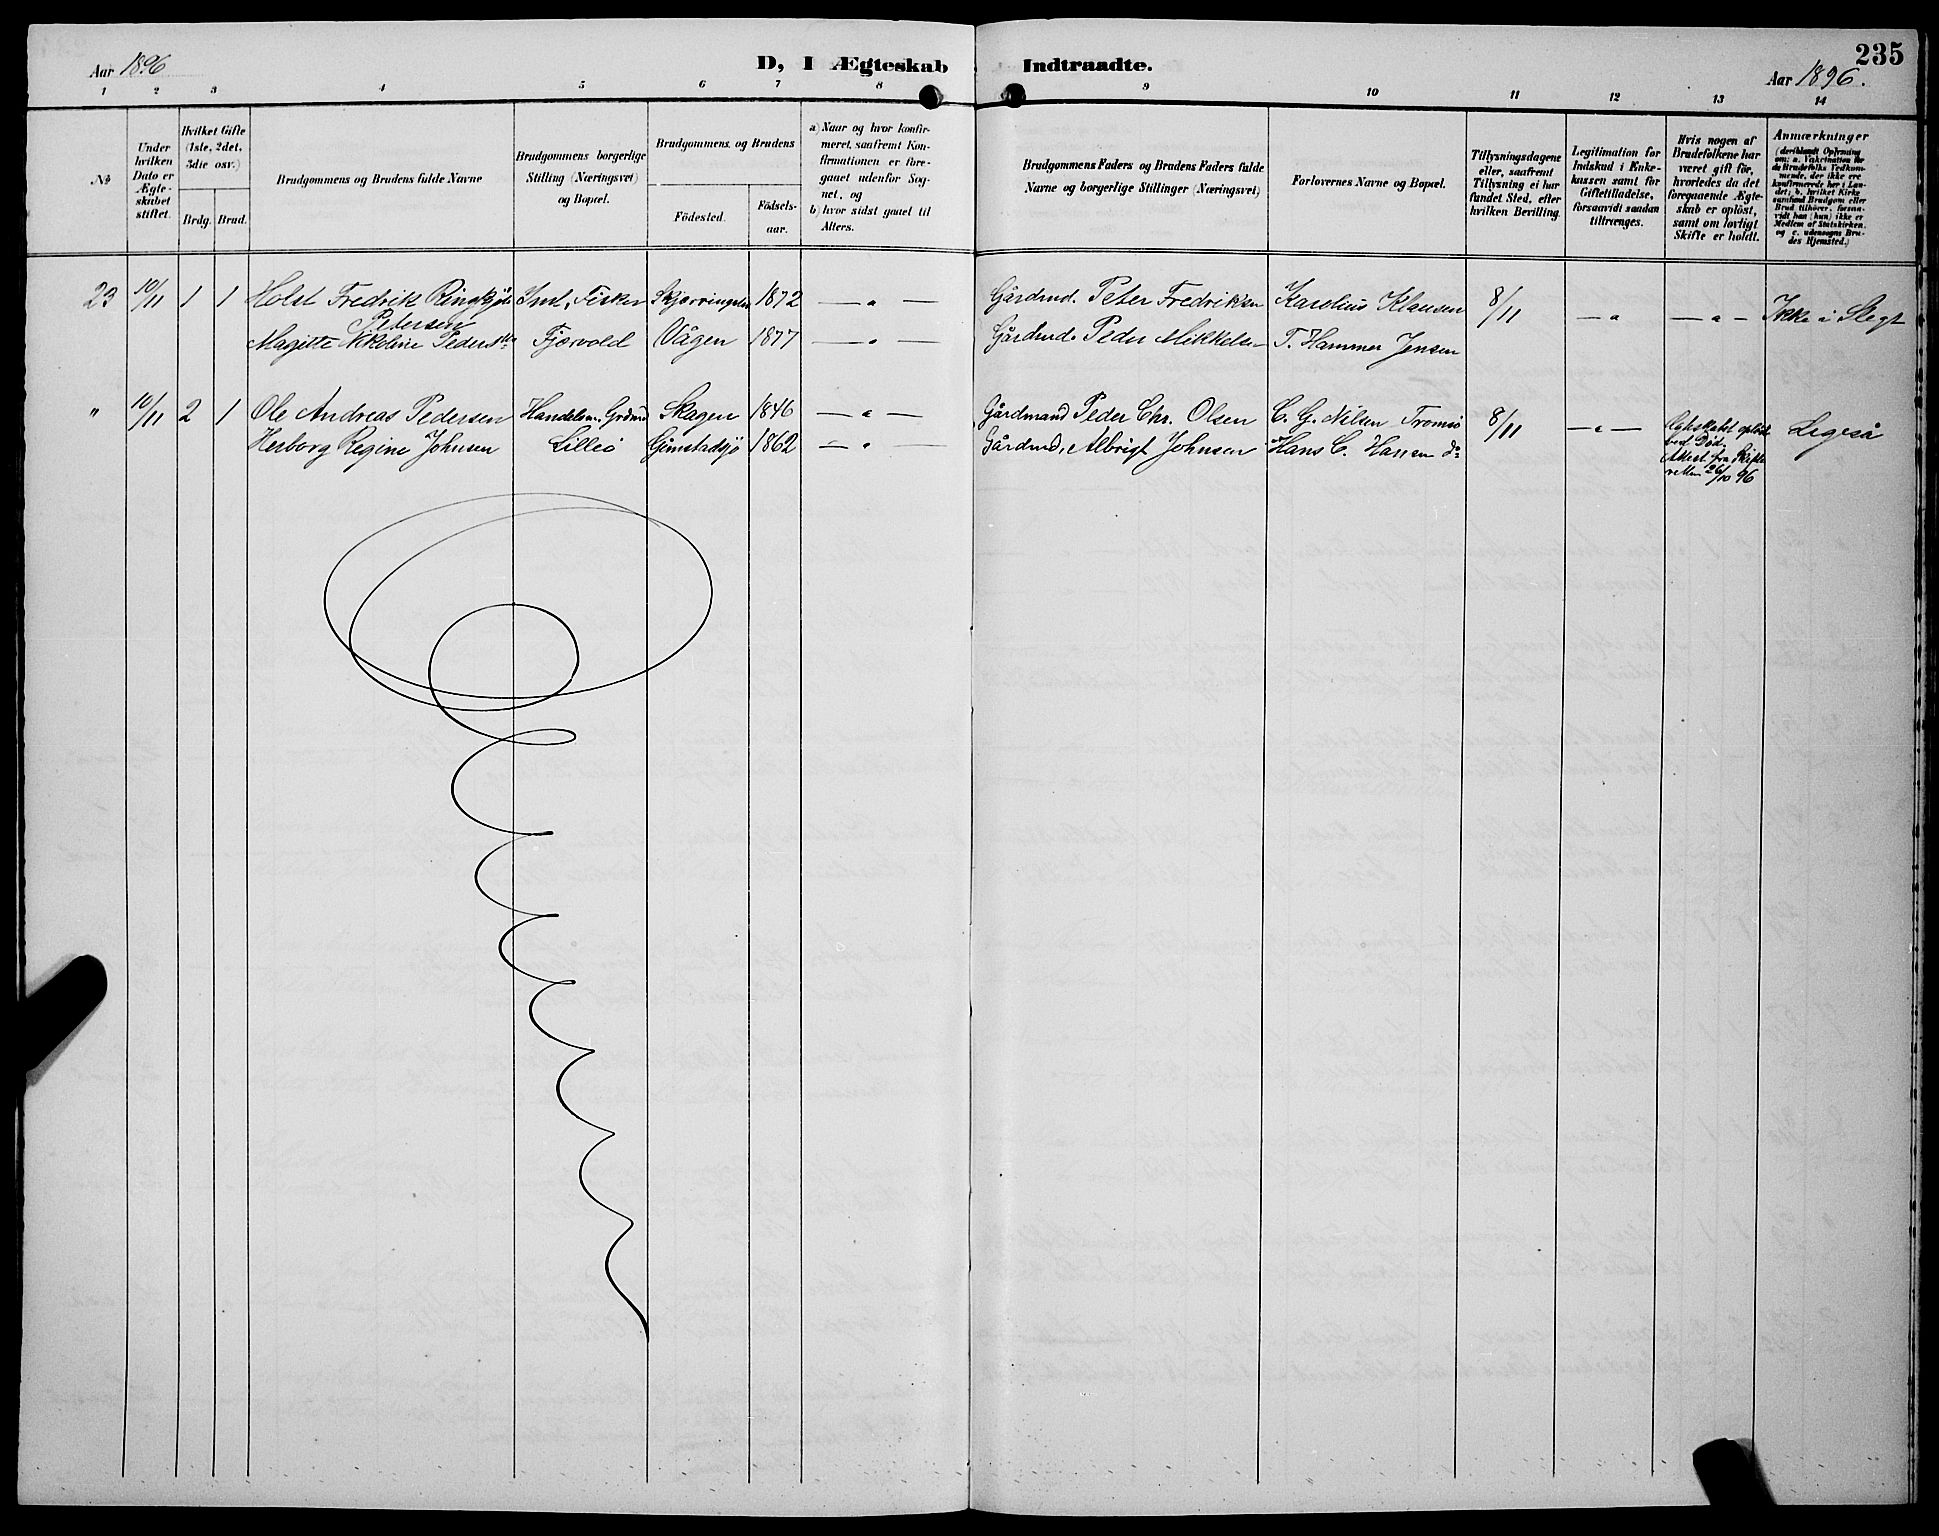 235
Aar 1896
D, I Ægteskab Indtraadte.
Aar 1896.
1 2 3 4 5 6 7 8 9 10 11 12 13 14
№
Under hvilken Dato er Ægteskabet stiftet.
Hvilket Gifte (1ste, 2det, 3die osv.)
Brdg. Brud.
Brudgommens og Brudens fulde Navne
Brudgommens borgerlige Stilling (Næringsvei) og Bopæl.
Brudgommens og Brudens
Födested.
Födselsaar.
a) Naar og hvor konfirmeret, saafremt Konfirmationen er foregaaet udenfor Sognet, og
b) hvor sidst gaaet til Alters.
Brudgommens Faders og Brudens Faders fulde Navne og borgerlige Stillinger (Næringsvei)
Forlovernes Navne og Bopæl.
Tillysningsdagene eller, saafremt Tillysning ei har fundet Sted, efter hvilken Bevilling.
Legitimation for Indskud i Enkekassen samt for Giftetilladelse, forsaavidt saadan tiltrænges.
Hvis nogen af Brudefolkene har været gift för, hvorledes da det foregaaende Ægteskab er oplöst, samt om lovligt Skifte er holdt.
Anmærkninger
(deriblandt Oplysning om: a. Vakcination for de Brudefolks Vedkommende, der ikke ere konfirmerede her i Landet; b. hvilket Kirkesamfund Brudgom eller Brud tilhörer, forsaavidt han (hun) ikke er Medlem af Statskirken, og c. udensogns Brudes Hjemsted.)
23 10/11 1 1 Holst Fredrik Petersen Fisker 1872 — " — Gårdmd. Peter Fredriksen Karolius Klausen 8/11 — " — — " — Ikke i Slegt
Magitte Nikoline Pedersdtr Fjærvold Vågen 1877 — " — Gårdmd. Peder Mikkelsen T. Hammer Jensen
" 10/11 2 1 Ole Andreas Pedersen Handelsm. Grdmd Skagen 1846 — " — Gårdmand Peder Chr. Olsen C. G. Nilsen Tromsö 8/11 — " — Ægtskabet oplöst ved Död. Attest fra Skifteretten 26/10 96 Ligeså
Herborg Regine Johnsen Lilleö Gimstadsjö 1862 — " — Gårdmd. Albrigt Johnsen Hans C. Hansen do